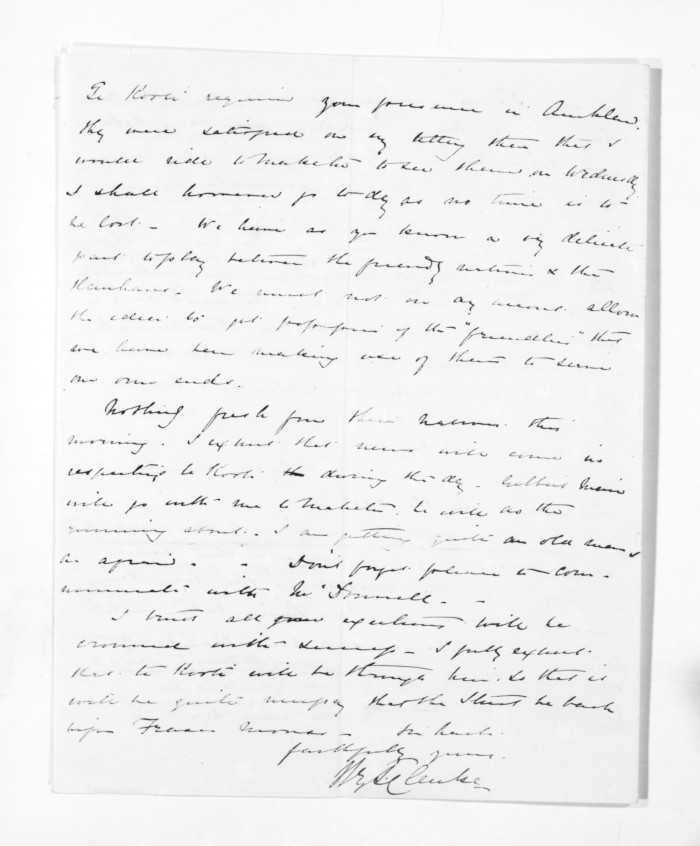 Te Kooti requires your presence in Auckland.
They were satisfied on my telling them that I
would ride to Maketu to see them on Wednesday
I shall however go to day as no time is to
be lost - We have as you know a very delicate
part to play between the friendly natives & the
Hauhaus - We must not on any account allow
the idea to get possession of the "friendlies" that
we have been making use of them to serve
our own ends.
Nothing fresh from the Natives this
morning. I expect that news will come in
respecting Te Kooti during the day. Gilbert Mair
will go with me to Maketu. he will do the
running about - I am getting quite an old man I
am afraid - - Don't forget please to com-
municate with McDonnell - -
I trust all your exertions will be
crowned with success - I fully expect
that Te Kooti will be through here. So that it
will be quite necessary that the Sturt be back
before Fraser moves - In haste
faithfully yours.
H. T. Clarke